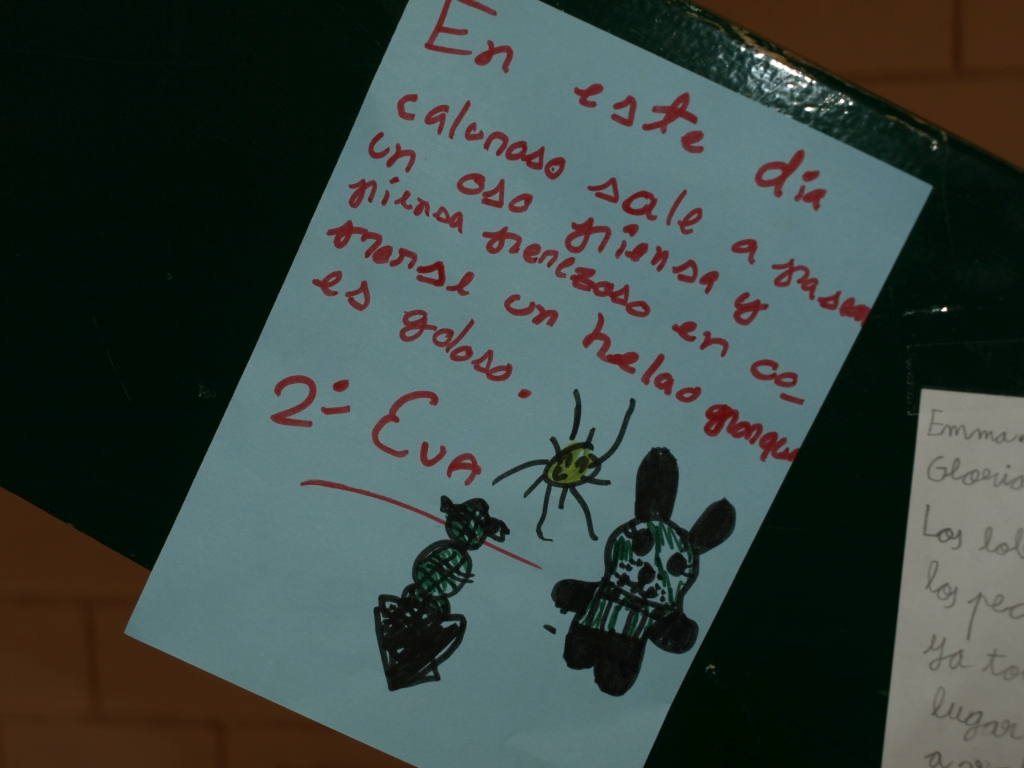 En este día
caluroso sale a pasear
un oso piensa y
piensa perezoso en co_
merse un helao
es goloso.
2º Eva
Emma
Gloria
Los
los
ya
lugar